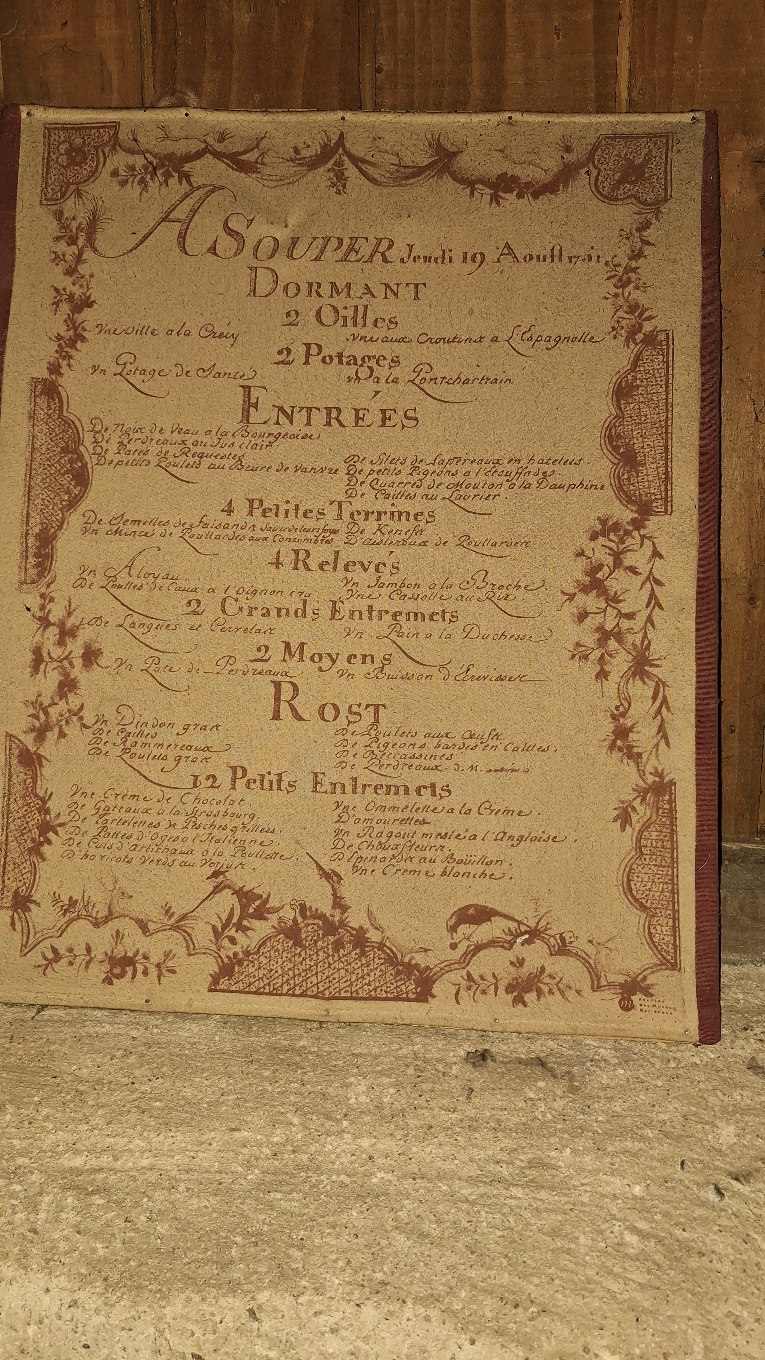 A SOUPER Jeudi 19 Aoust
DORMANT
2 Oilles
Vne oille a la Crécy
Vne aux Croutins a L'Espagnolle
2 Potages
Vn Potage de Santé
vn a la Pontchartrain
ENTRÉES
De Noix de Veau a la Bourgeoise
De Perdreaux au Jus clair
De Patés de Requestes
De petits Poulets au Beure de Vanvre
De filets de Lapereaux en hatelets.
De petits Pigeons a l'étouffade.
De Quarrés de Mouton a la Dauphine
De Cailles au Laurier.
4 Petites Terrines
De Semelles de faisands
Vn Emincé de Poullardes aux Concombres
De Poullardes
4 Relevés
Vn Aloyau
De Poulles de Caux a l'Oignon cru
Vn Jambon a la Broche.
Vne Cassolle au Riz.
2 Grands Entremets
De Langues et Cervelats
Vn Pain a la Duchesse
2 Moyens
Vn Paté de Perdreaux
Vn Buisson d'Ecrevisses
ROST
Vn Dindon gras.
De Cailles
De Rammereaux
De Poulets gras
De Poulets aux Oeufs
De Pigeons bardés en Cailles.
De Beccassines
De Perdreaux
12 Petits Entremets
Vne Crême de Chocolat
De Gateaux a la Strasbourg.
De Tartelettes de Pesches grillées.
De Rotties l'Italienne
De Culs d'artichaux a la Poullette.
D'haricots verds au Verjus.
Vne Ommelette a la Crême.
D'amourettes
Vn Ragout meslé a l'Angloise.
De Chouxfleurs.
D'Epinards au Boüillon.
Vne Crême blanche.